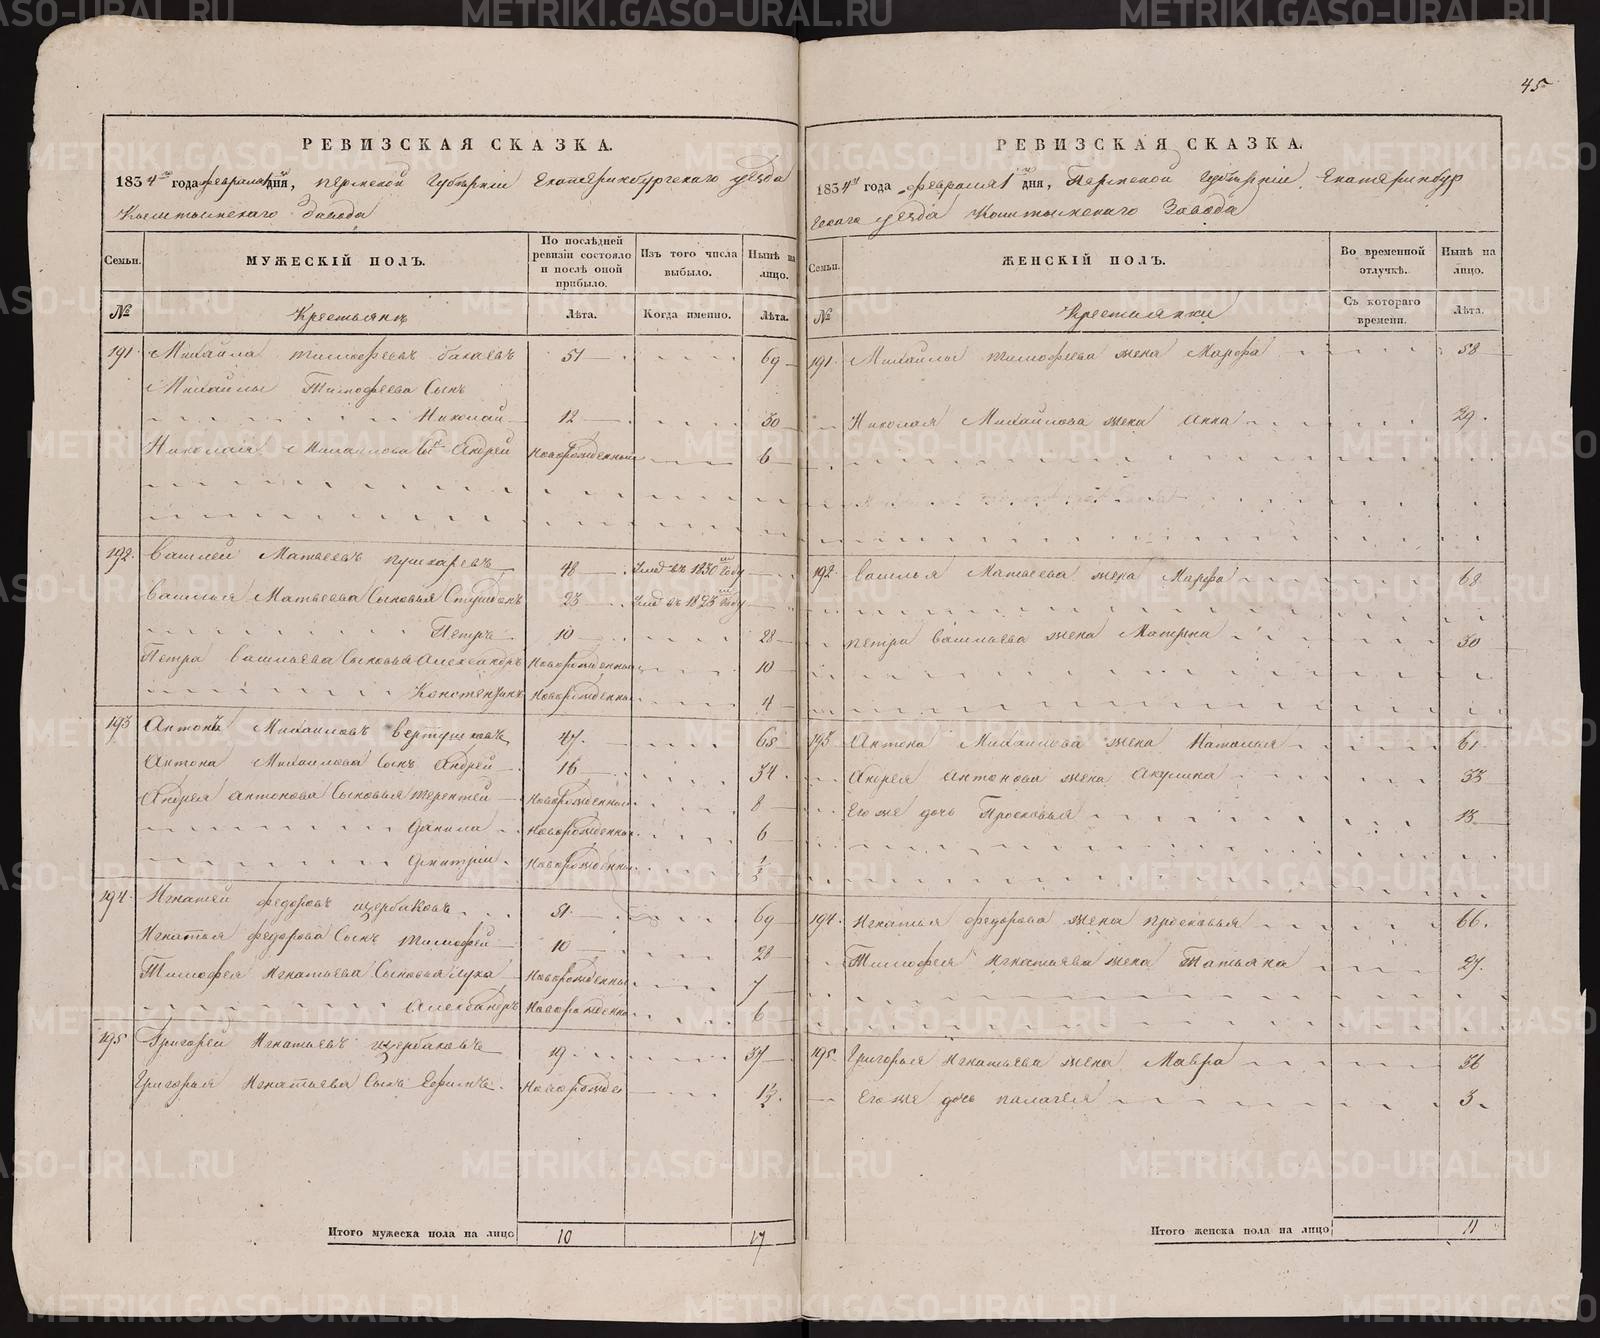 45
РЕВИЗСКАЯ СКАЗКА.
1834 го года февраля 1 дня, Пермской Губѣрніи Екатеринбургскаго уѣзда
Кыштымскаго Завода
Семьи. МУЖЕСКІЙ ПОЛЪ. По послѣдней ревизіи состояло и послѣ оной прибыло. Изъ того числа выбыло. Нынѣ на лицо.
№ Крестьянъ Лѣта. Когда именно. Лѣта.
191. Михаила Тимофеевъ 51 69
Михаилы Тимофеева Сынъ
Николай 12 30
Николая Михаилова Сы Андрей Новорожденный 6
192. Василей Матвеевъ Пушкаревъ 48 Умѐ въ 1830 м Году
Василья Матвеева Сыновья Степанъ 23 Умѐ въ 1823 м Году
Петръ 10 28
Петра Васильева Сыновья Александръ Новорожденны 10
Констентинъ Новорожденны 4
193 Антонъ Михаиловъ Вертушковъ 47. 65
Антона Михаилова Сынъ Андрей 16 34.
Андрея Антонова Сыновья Терентей Новорожденный 8
Данила Новорожденны 6
Дмитріи Новорожденны
194. Игнатей Федоровъ Щербаковъ 51. 69
Игнатья Федорова Сынъ Тимофей 10 28
Тимофея Игнатьева Сыновья Лука Новорожденны 7
Александръ Новорожденны 6
195 Григорей Игнатьевъ Щербаковъ 19. 37
Григорья Игнатьева Сынъ Ефимъ. Новорожде
Итого мужеска пола на лицо 10 17
РЕВИЗСКАЯ СКАЗКА.
1834 го года февраля 1 дня, Пермской Губѣрніи Екатеринбур
гскаго уѣзда Кыштымскаго Завода
Семьи. ЖЕНСКІЙ ПОЛЪ. Во временной отлучкѣ. Нынѣ на лицо.
№ Крестьянки Съ котораго времени. Лѣта.
191. Михаилы Тимофеева жена Марфа 58
Николая Михаилова жена Анна 29.
192. Василья Матвеева жена Марфа 68
Петра Васильева жена Матрена 30
193 Антона Михаилова жена Наталья 61
Андрея Антонова жена Акулина 33
Его же дочь Просковья 13
194. Игнатья Федорова жена Просковья 66.
Тимофея Игнатьева жена Татьяна 27.
195. Григорья Игнатьева жена Мавра 36
Его же дочь Палагея 3
Итого женска пола на лицо 11
METRIKI.GASO-URAL.RU